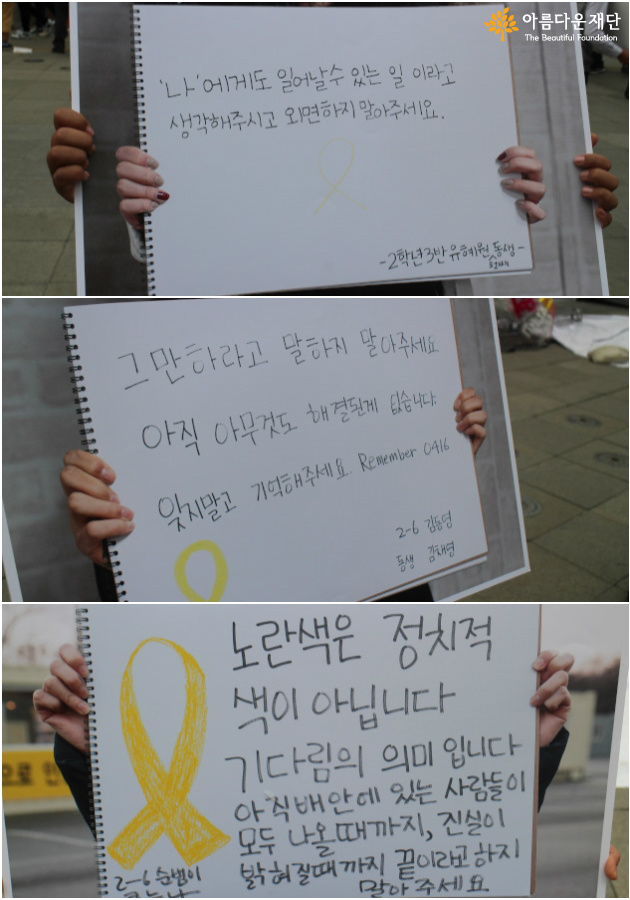 아름다운재단
The Beautiful Foundation
'나'에게도 일어날수 있는 일 이라고
생각해주시고 외면하지 말아주세요.
-2학년3반 유혜원 동생-
그만하라고 말하지 말아주세요
아직 아무것도 해결된게 없습니다.
잊지말고 기억해주세요. Remember 0416
2-6 김동영
동생 김채영
노란색은 정치적
색이 아닙니다
기다림의 의미 입니다
아직배안에 있는 사람들이
모두 나올때까지, 진실이
밝혀질때까지 끝이라고하지
말아 주세요
2-6 순범이